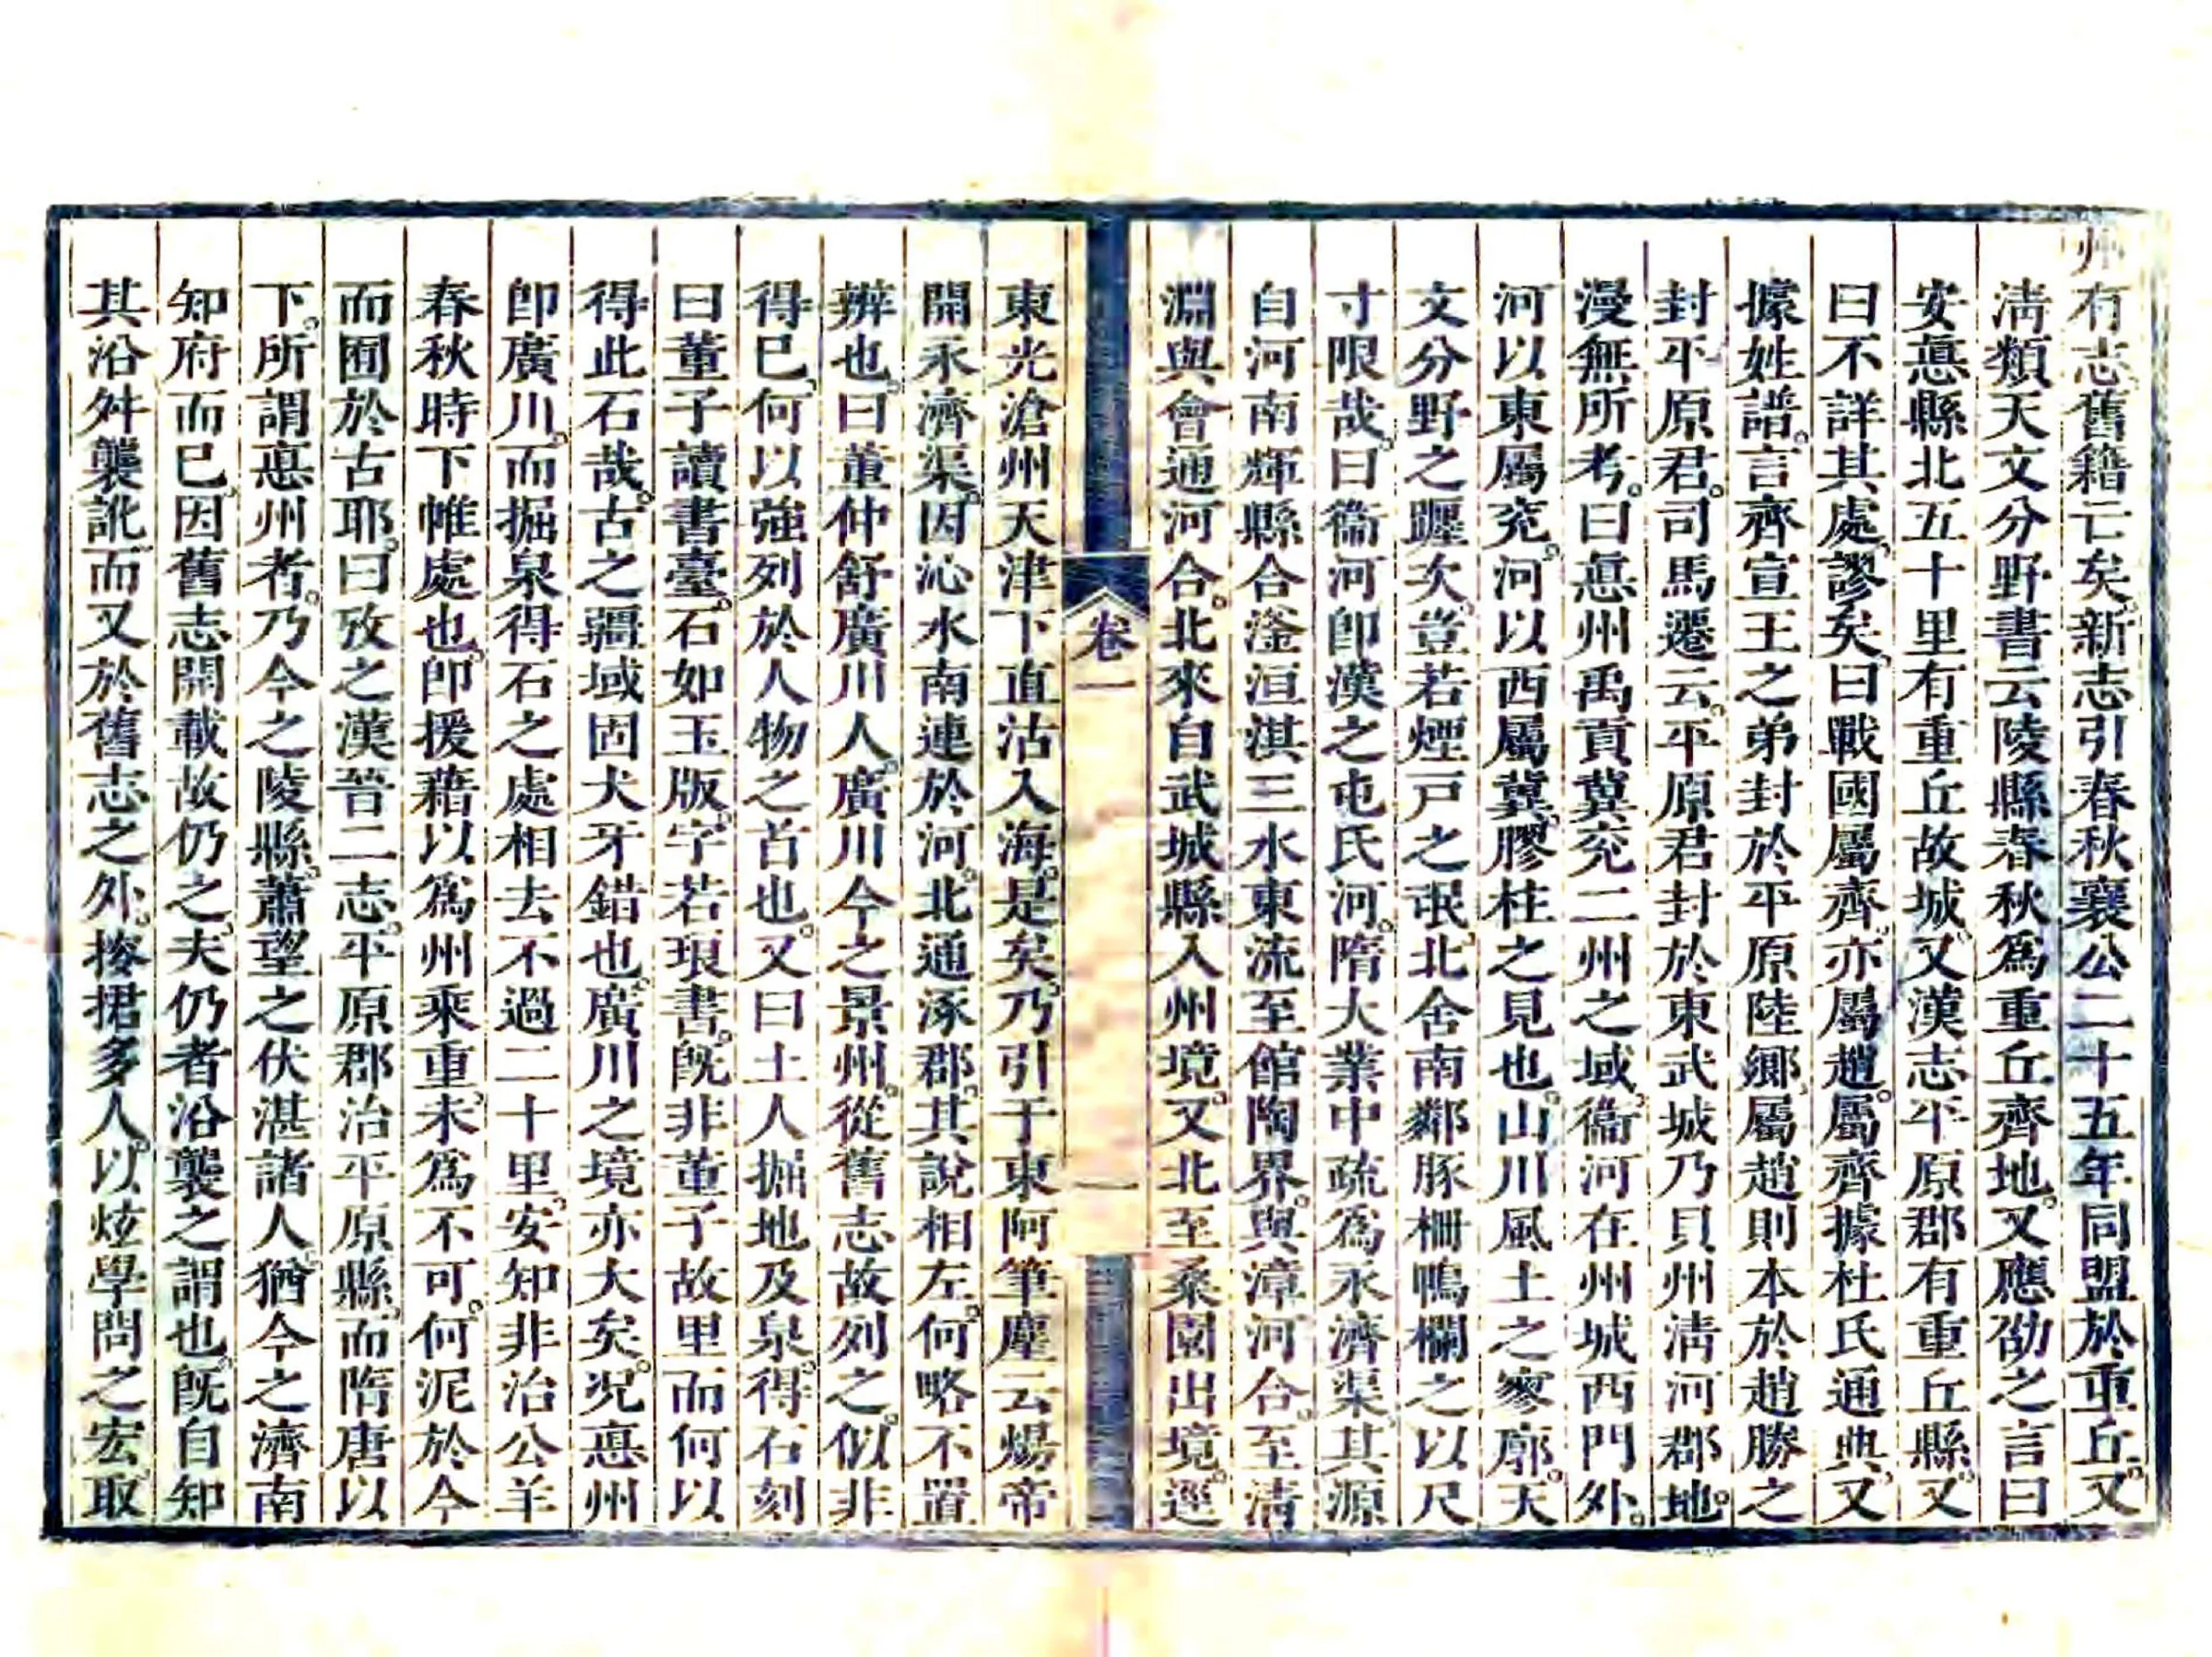 州有志舊籍亡矣。新志引春秋襄公二十五年同盟於重丘。又
淸類天文分野書云陵縣春秋爲重丘齊地。又應劭之言曰
安悳縣北五十里有重丘故城。又漢志平原郡有重丘縣。又
曰不詳其處。謬矣。曰戰國屬齊。亦屬趙。屬齊據杜氏通典。又
據姓譜。言齊宣王之弟封於平原陸鄉。屬趙則本於趙勝之
封平原君。司馬遷云。平原君封於東武城乃貝州淸河郡地。
漫無所考。曰悳州禹貢冀兖二州之域。衞河在州城西門外。
河以東屬兖。河以西屬冀。膠柱之見也。山川風土之寥廓。天
文分野之躔次。豈若煙戸之氓。北舍南鄰豚柵鴨欄之以尺
寸限哉。曰衞河卽漢之屯氏河。隋大業中疏爲永濟渠。其源
自河南輝縣合滏洹淇三水東流至館陶界。與漳河合。至淸
淵與會通河合。北來自武城縣入州境。又北至桑園出境。逕
卷一
一
東光滄州天津下直沽入海。是矣。乃引于東阿筆麈云煬帝
開永濟渠。因沁水南連於河。北通涿郡。其說相左。何略不置
辨也。曰董仲舒廣川人。廣川今之景州。從舊志故列之。似非
得已。何以強列於人物之首也。又曰土人掘地及泉。得石刻
曰董子讀書臺。石如玉版。字若琅書。旣非董子故里而何以
得此石哉。古之疆域固犬牙錯也。廣川之境亦大矣。況悳州
卽廣川。而掘泉得石之處相去不過二十里。安知非治公羊
春秋時下帷處也。卽援藉以爲州乘重。未爲不可。何泥於今
而囿於古耶。曰攷之漢晉二志。平原郡治平原縣。而隋唐以
下。所謂悳州者。乃今之陵縣。蕭望之伏湛諸人。猶今之濟南
知府而已。因舊志開載故仍之。夫仍者沿襲之謂也。旣自知
其沿舛襲訛。而又於舊志之外。捘捃多人。以炫學問之宏。取